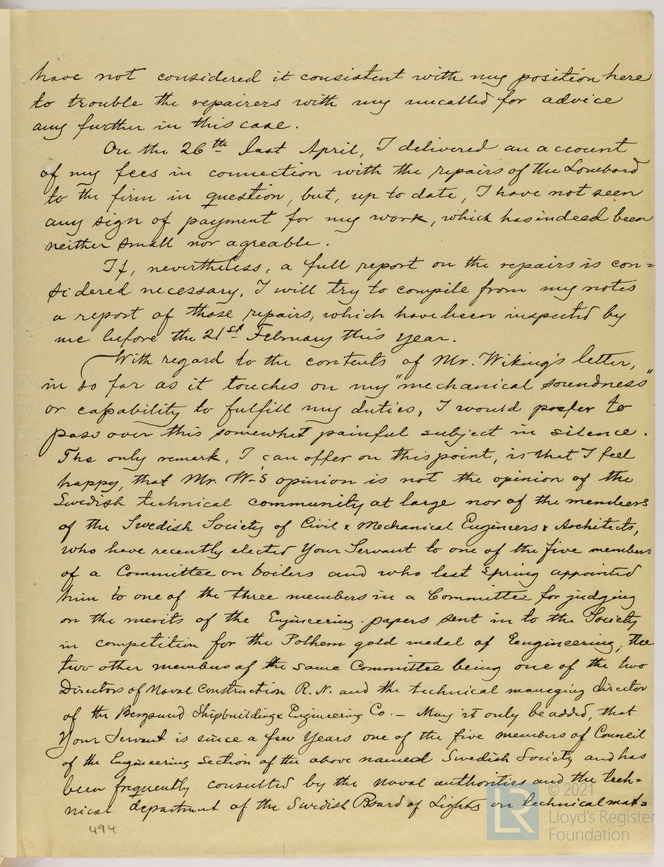 have not considered it consistent with my position here
to trouble the repairers with my uncalled for advice
any further in this case.
On the 26th last April, I delivered an account
of my fees in connection with the repairs of the Lombard
to the firm in question, but, up to date, I have not seen
any sign of payment for my work, which has indeed been
neither small nor agreable.
If, nevertheless, a full report on the repairs is con=
sidered necessary, I will try to compile from my notes
a report of those repairs, which have been inspected by
me before the 21st February this year.
With regard to the contents of Mr. Wiking's letter,
in so far as it touches on my "mechanical soundness"
or capability to fulfill my duties, I would prefer to
pass over this somewhat painful subject in silence.
The only remark, I can offer on this point, is that I feel
happy, that Mr. W-s opinion is not the opinion of the
Swedish technical community at large nor of the members
of the Swedish Society of Civil & Mechanical Engineers & Architects,
who have recently elected Your Servant to one of the five members
of a Committee on boilers and who last Spring appointed
him to one of the three members in a Committee for judging
on the merits of the Engineering papers sent in to the Society
in competition for the Polhem gold medal of Engineering, the
two other members of the same Committee being one of the two
Directors of Naval Construction R.N. and the technical managing director
of the Bergsund Shipbuilding & Engineering Co. — May it only be added, that
Your Servant is since a few Years one of the five members of Council
of the Engineering Section of the above named Swedish Society and has
been frequently consulted by the naval authorities and the tech-
nical department of the Swedish Board of Lights on technical mat=
494
© 2021
LR
Lloyd's Register
Foundation